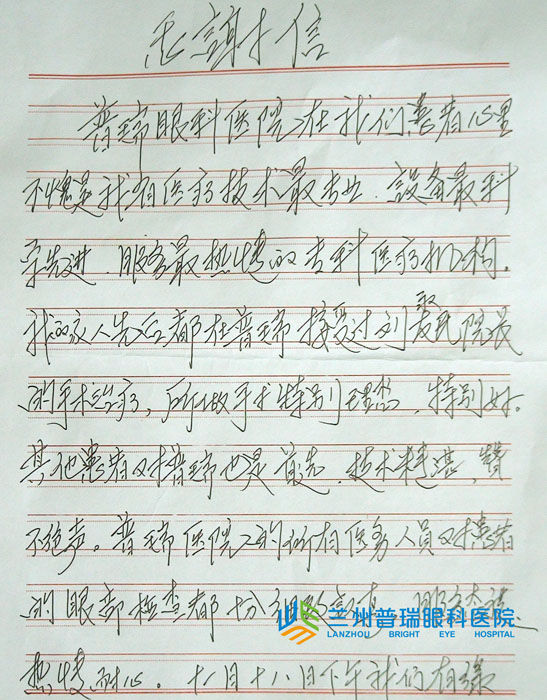 感谢信
普瑞眼科医院在我们患者心里
不愧是我省医疗技术最专业、设备最科
学先进、服务最热情的专科医疗机构。
我的家人先后都在普瑞接受过刘 院长
的手术治疗,所做手术特别理想,特别好。
其他患者对普瑞也是首选,技术精湛,赞
不绝声。普瑞医院 的所有医务人员对患者
的眼部检查都十分
热情、耐心。十一月十八日下午我们有
兰州普瑞眼科医院
LANZHOU BRIGHT EYE HOSPITAL